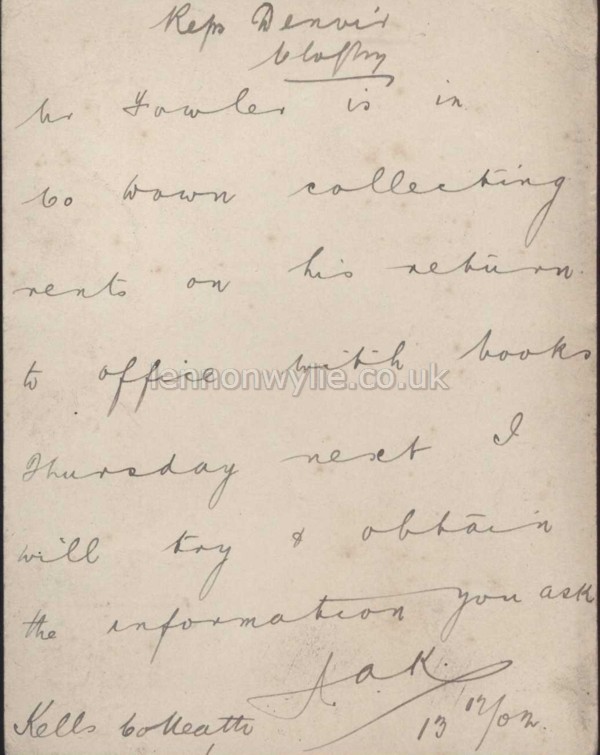 Reps Denvir
Mr Fowler is in
Co Down collecting
rents on his return
to office with books
lennonwylie.co.uk
Thursday next I
will try & obtain
the information you ask
J.a.K.
Kells Co Meath 13/12/02